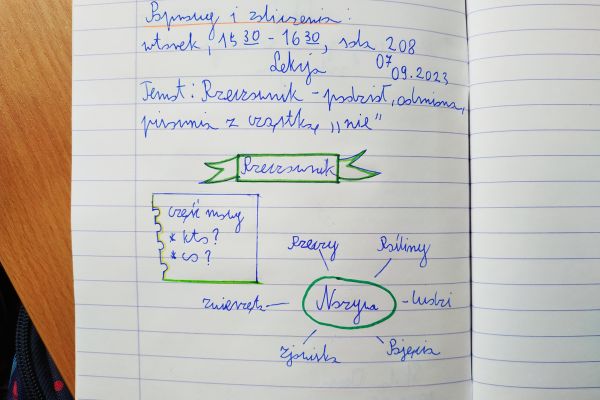 Poprawy i zaliczenia:
wtorek, 15 30 - 16 30, sala 208
Lekcja 07 09.2023
Temat: Rzeczownik - podział, odmiana,
pisownia z cząstką „nie”
Rzeczownik
część mowy
* kto?
* co?
Rzeczy Rośliny
zwierzęta Nazywa - ludzi
Zjawiska Pojęcia